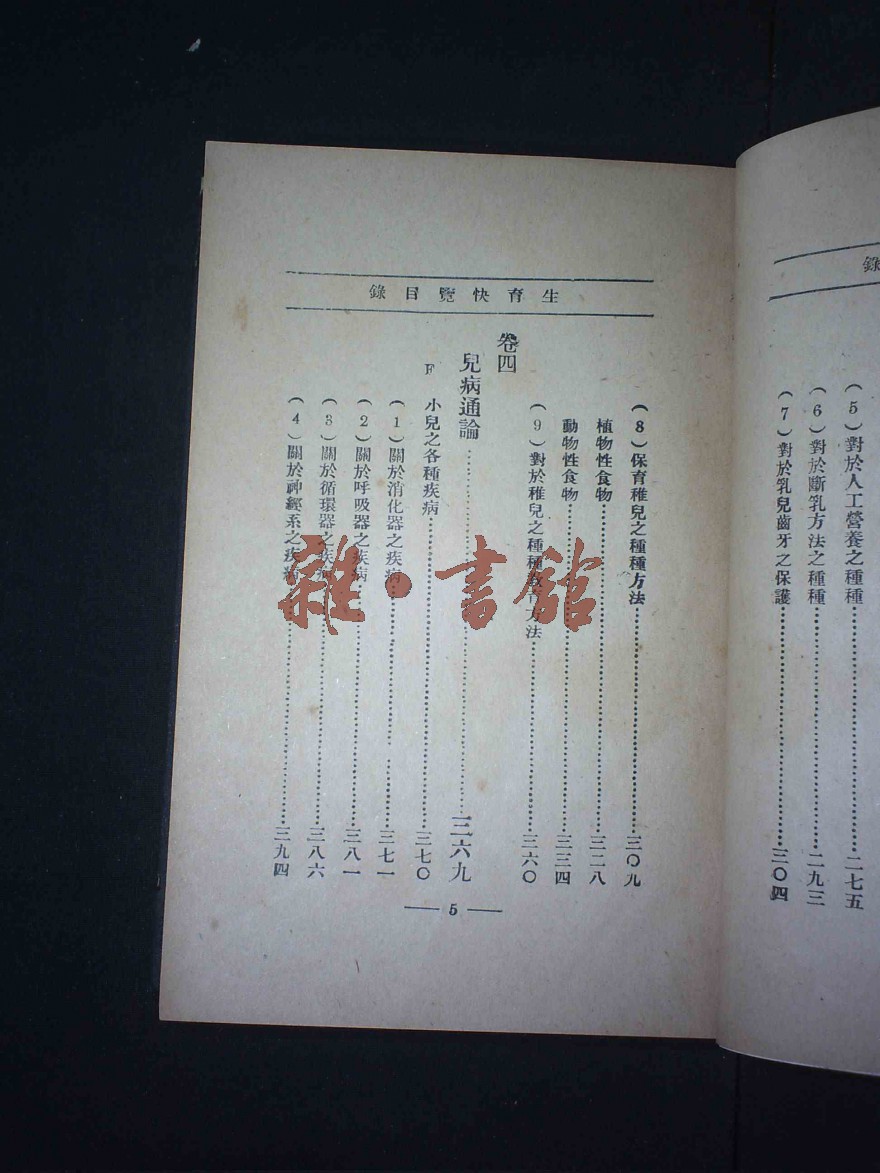 錄
(5)對於人工營養之種種……二七五
(6)對於斷乳方法之種種……二九三
(7)對於乳兒齒牙之保護……三〇四
生育快覽目錄
(8)保育稚兒之種種方法……三〇九
植物性食物……三二八
動物性食物……三三四
(9)對於稚兒之種種教育方法……三六〇
卷四
兒病通論……三六九
F 小兒之各種疾病……三七〇
(1)關於消化器之疾病……三七一
(2)關於呼吸器之疾病……三八一
(3)關於循環器之疾病……三八六
(4)關於神經系之疾病……三九四
5
雜·書館